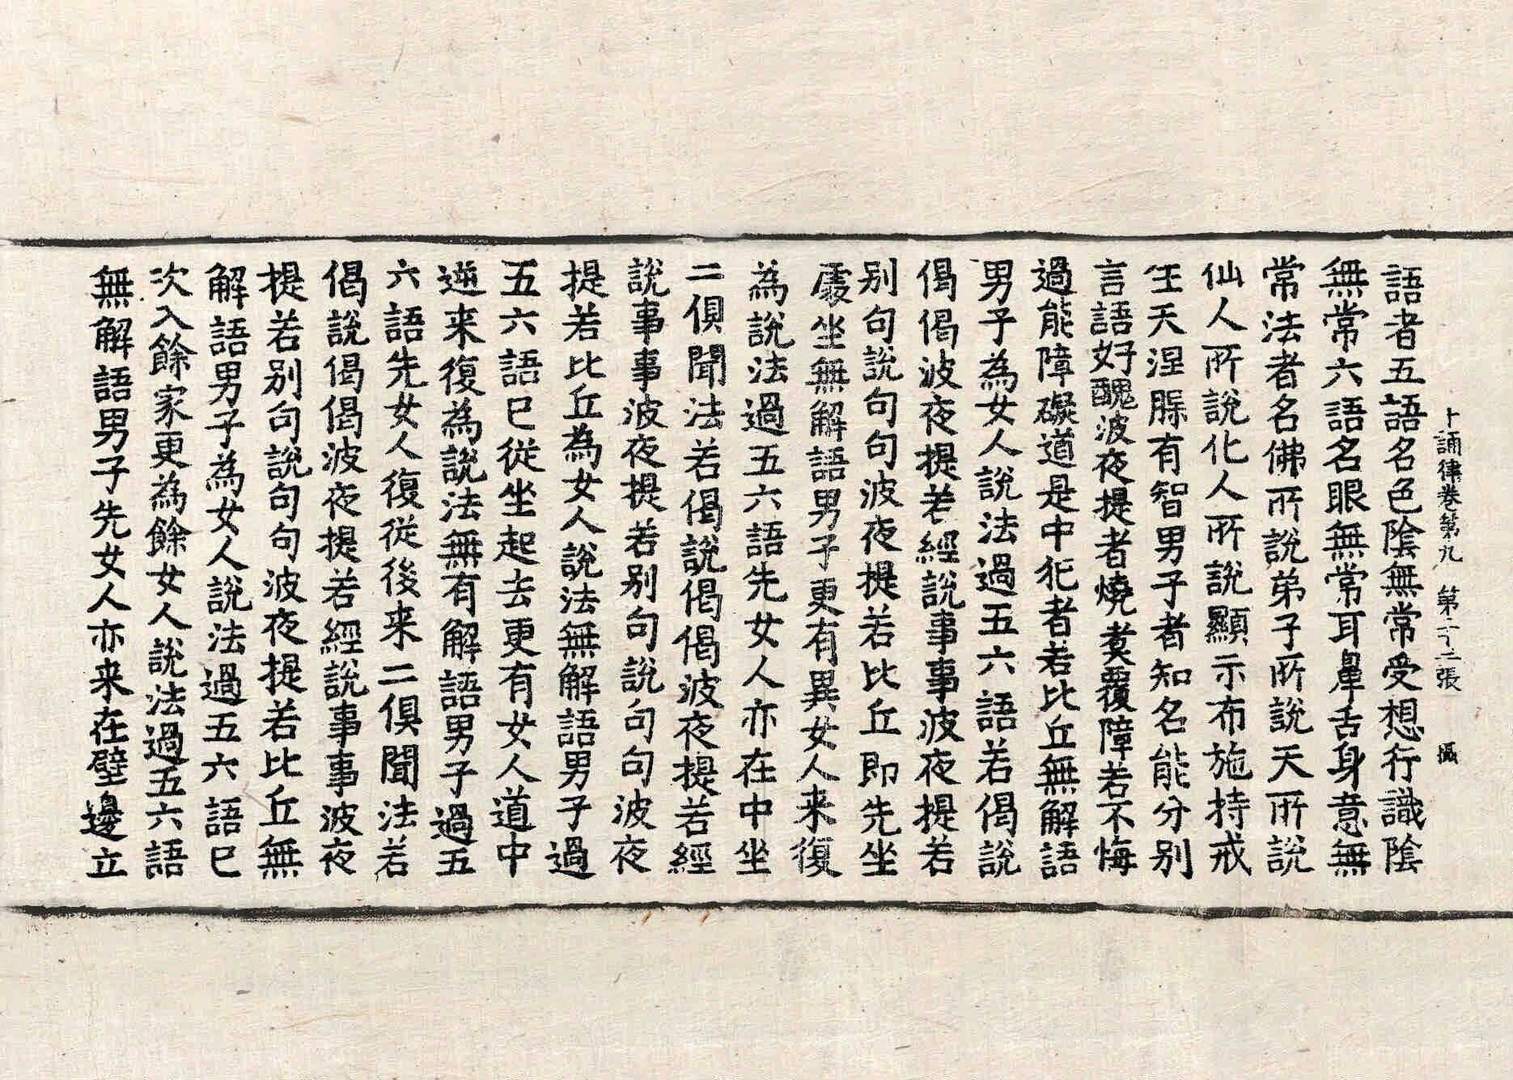 十誦律卷第九　第二十二張　攝
語者五語名色陰無常受想行識陰
無常六語名眼無常耳鼻舌身意無
常法者名佛所說弟子所說天所說
仙人所說化人所說顯示布施持戒
生天涅槃有智男子者知名能分別
言語好醜波夜提者燒煑覆障若不悔
過能障礙道是中犯者若比丘無解語
男子為女人說法過五六語若偈說
偈偈波夜提若經說事事波夜提若
別句說句句波夜提若比丘即先坐
處坐無解語男子更有異女人来復
為說法過五六語先女人亦在中坐
二俱聞法若偈說偈偈波夜提若經
說事事波夜提若別句說句句波夜
提若比丘為女人說法無解語男子過
五六語已從坐起去更有女人道中
逆来復為說法無有解語男子過五
六語先女人復從後来二俱聞法若
偈說偈偈波夜提若經說事事波夜
提若別句說句句波夜提若比丘無
解語男子為女人說法過五六語已
次入餘家更為餘女人說法過五六語
無解語男子先女人亦来在壁邊立